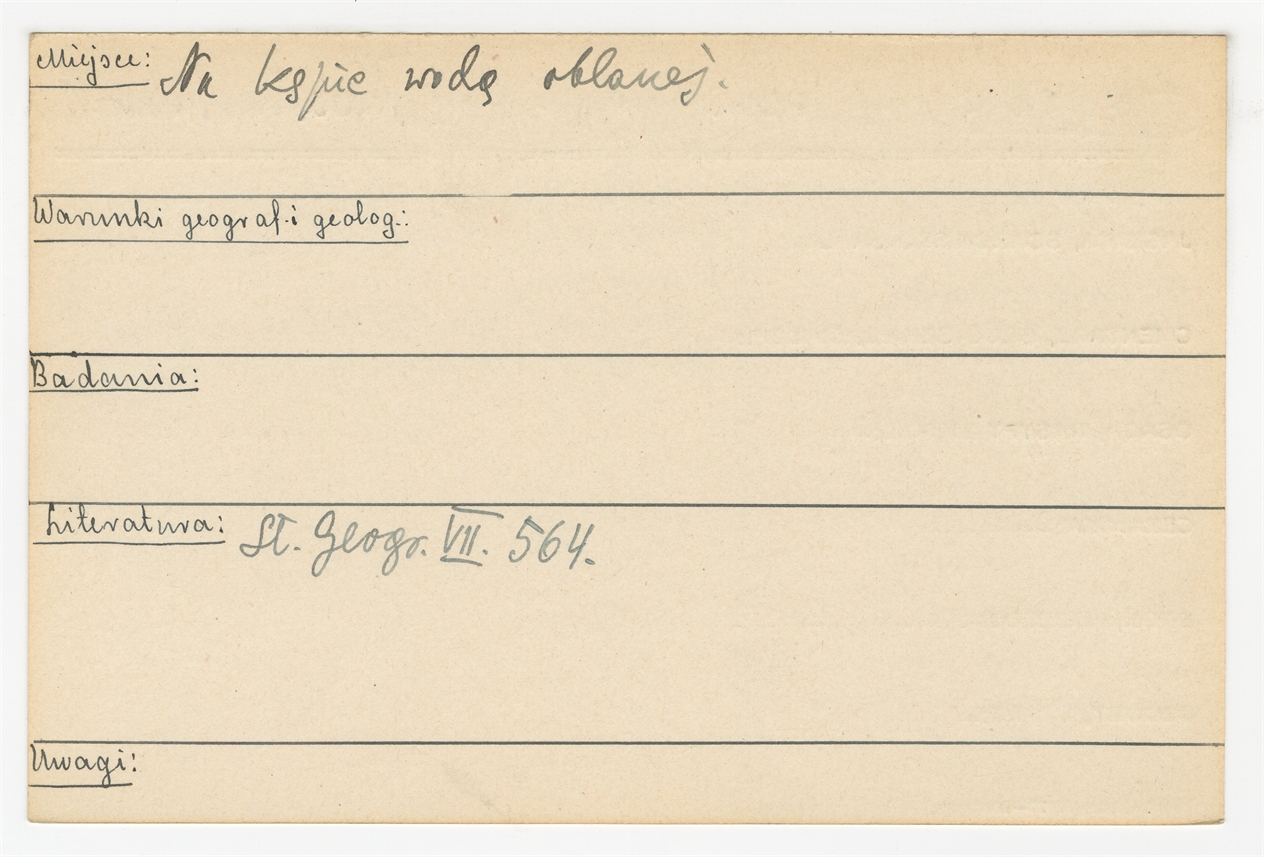 Miejsce: Na kępie wodą oblanej.
Warunki geograf. i geolog.:
Badania:
Literatura: Sł. Geogr. VII. 564.
Uwagi: